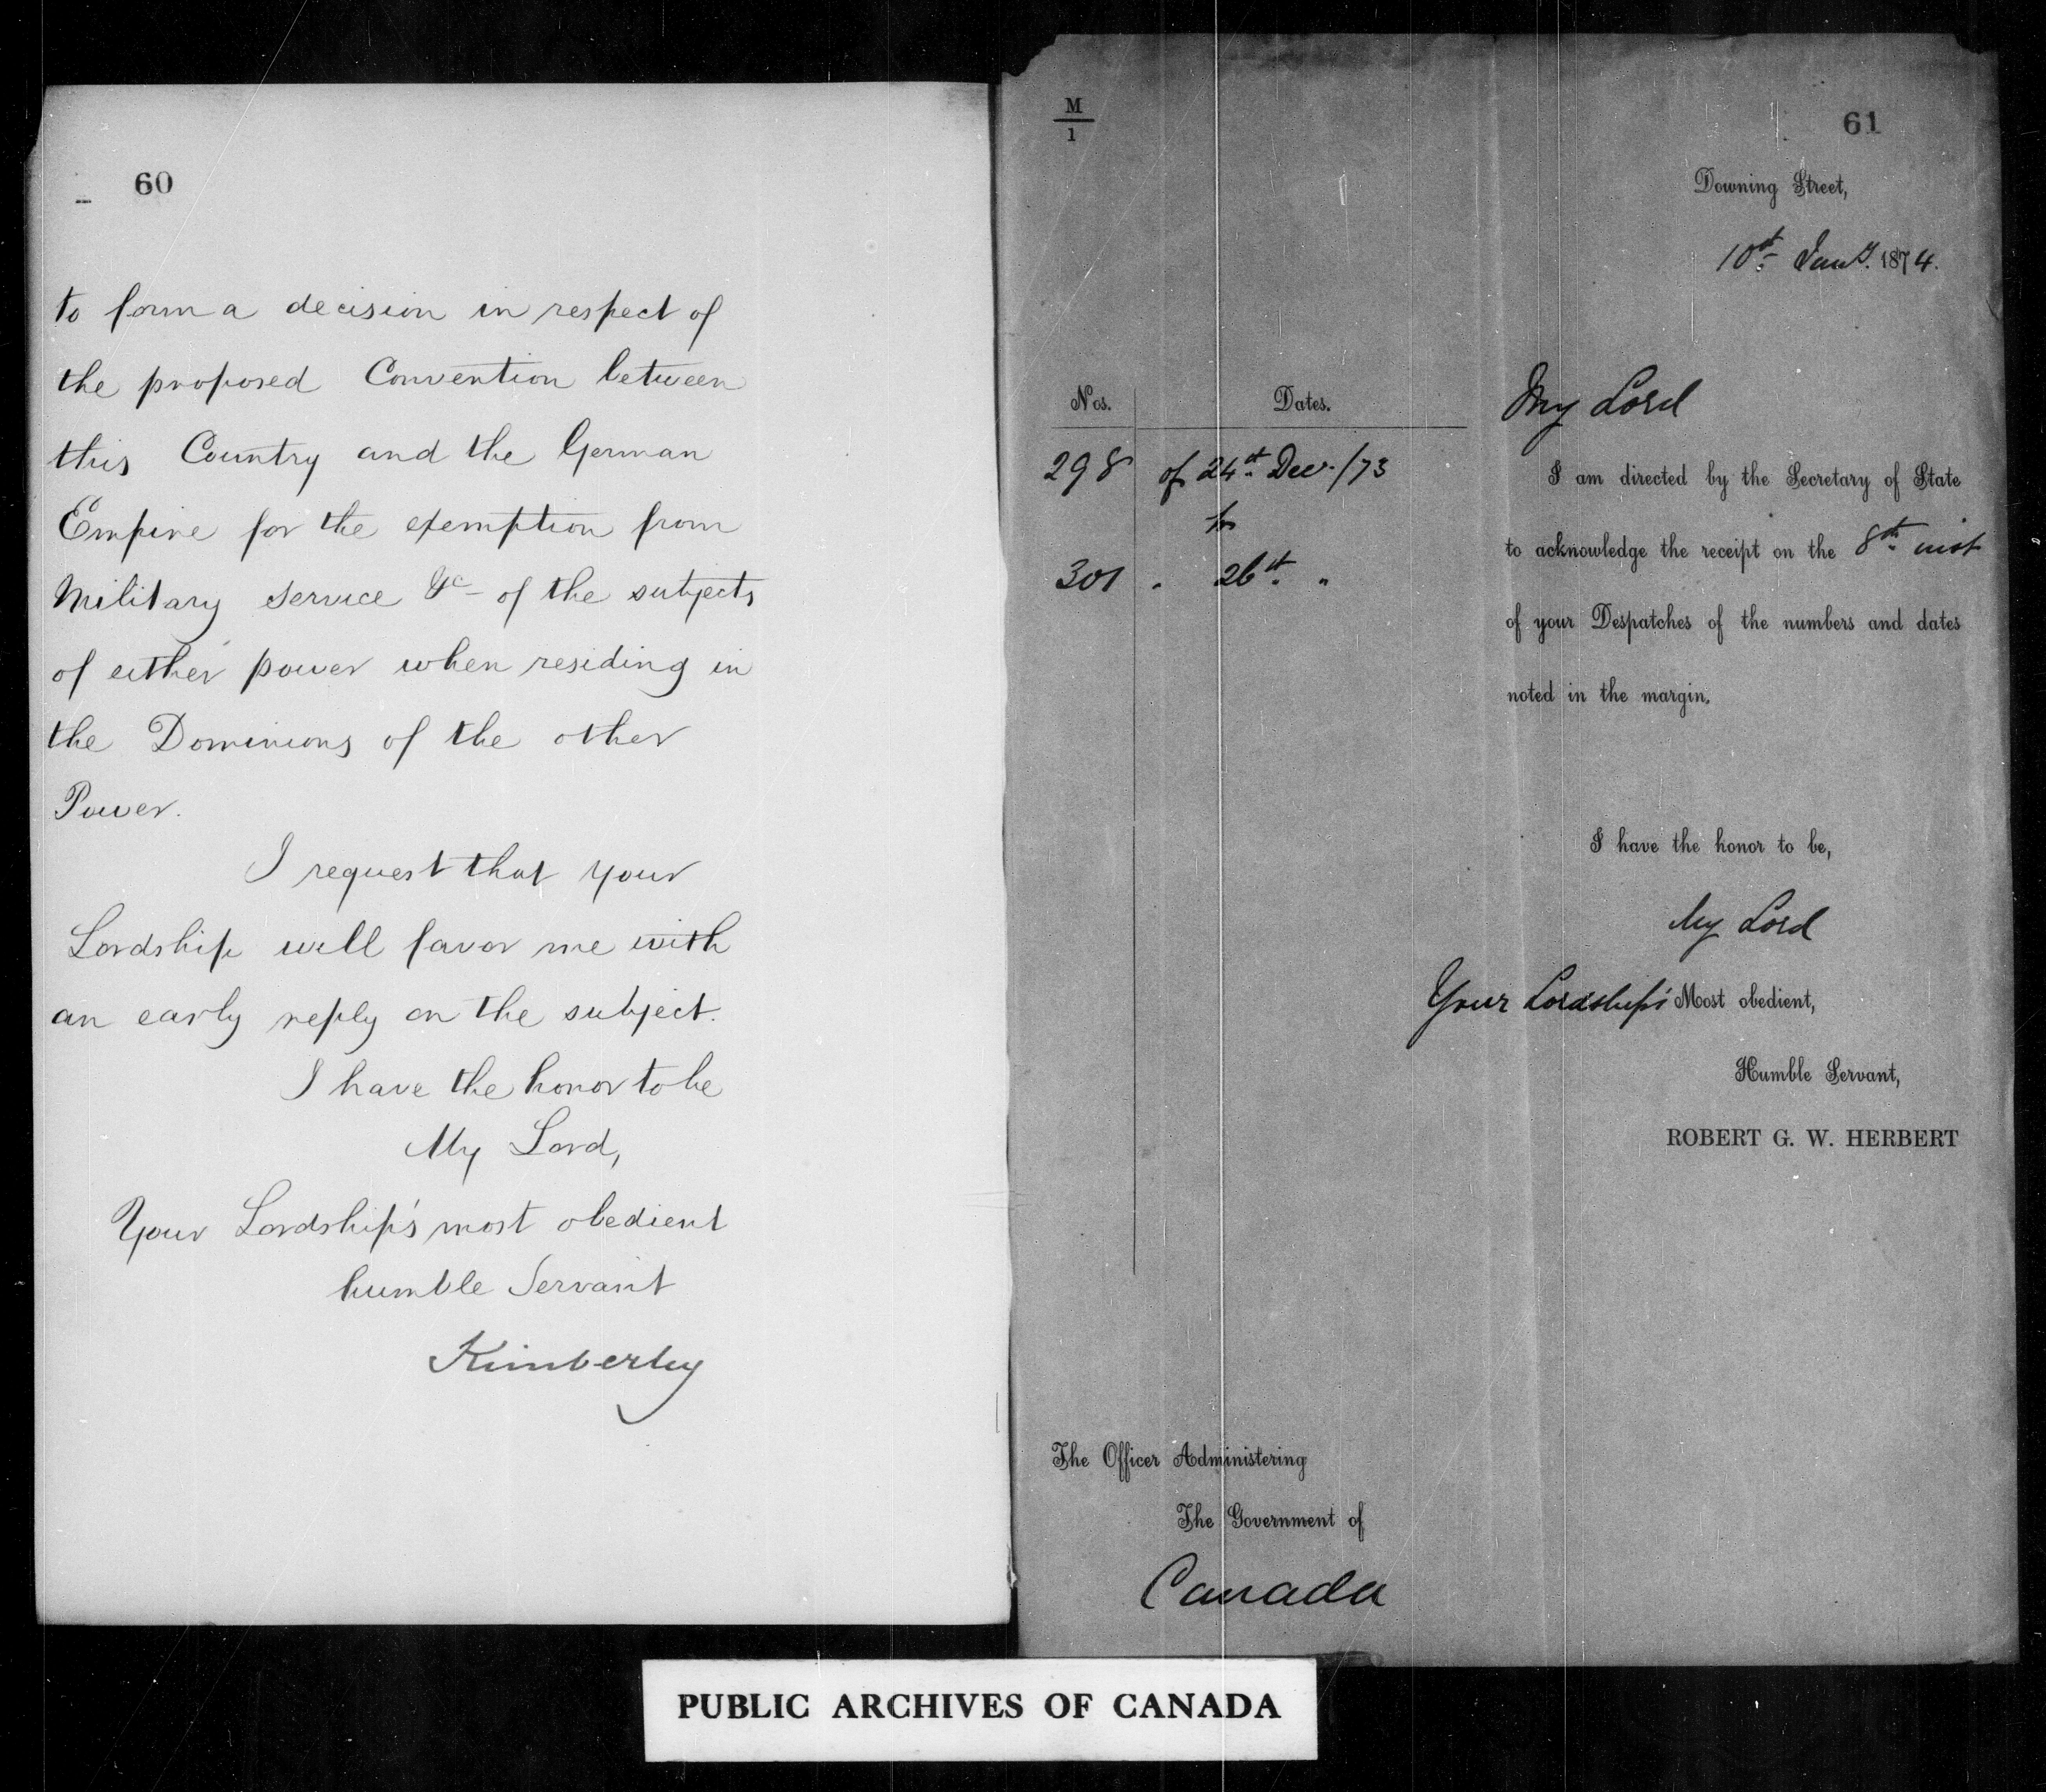 60
to form a decision in respect of
the proposed Convention between
this Country and the German
Empire for the exemption from
Military Service &c of the subjects
of either power when residing in
the Dominions of the other
Power.
I request that your
Lordship will favor me with
an early reply on the subject.
I have the honor to be
My Lord,
Your Lordship's most obedient
humble Servant
Kimberley
M
1
61
Downing Street,
10th Jany. 1874.
Nos. Dates.
298 of 24th Decr./73
to
301 " 26th "
My Lord
I am directed by the Secretary of State
to acknowledge the receipt on the 8th inst
of your Despatches of the numbers and dates
noted in the margin.
I have the honor to be,
My Lord
Your Lordship's Most obedient,
Humble Servant,
ROBERT G. W. HERBERT
The Officer Administering
The Government of
Canada
PUBLIC ARCHIVES OF CANADA